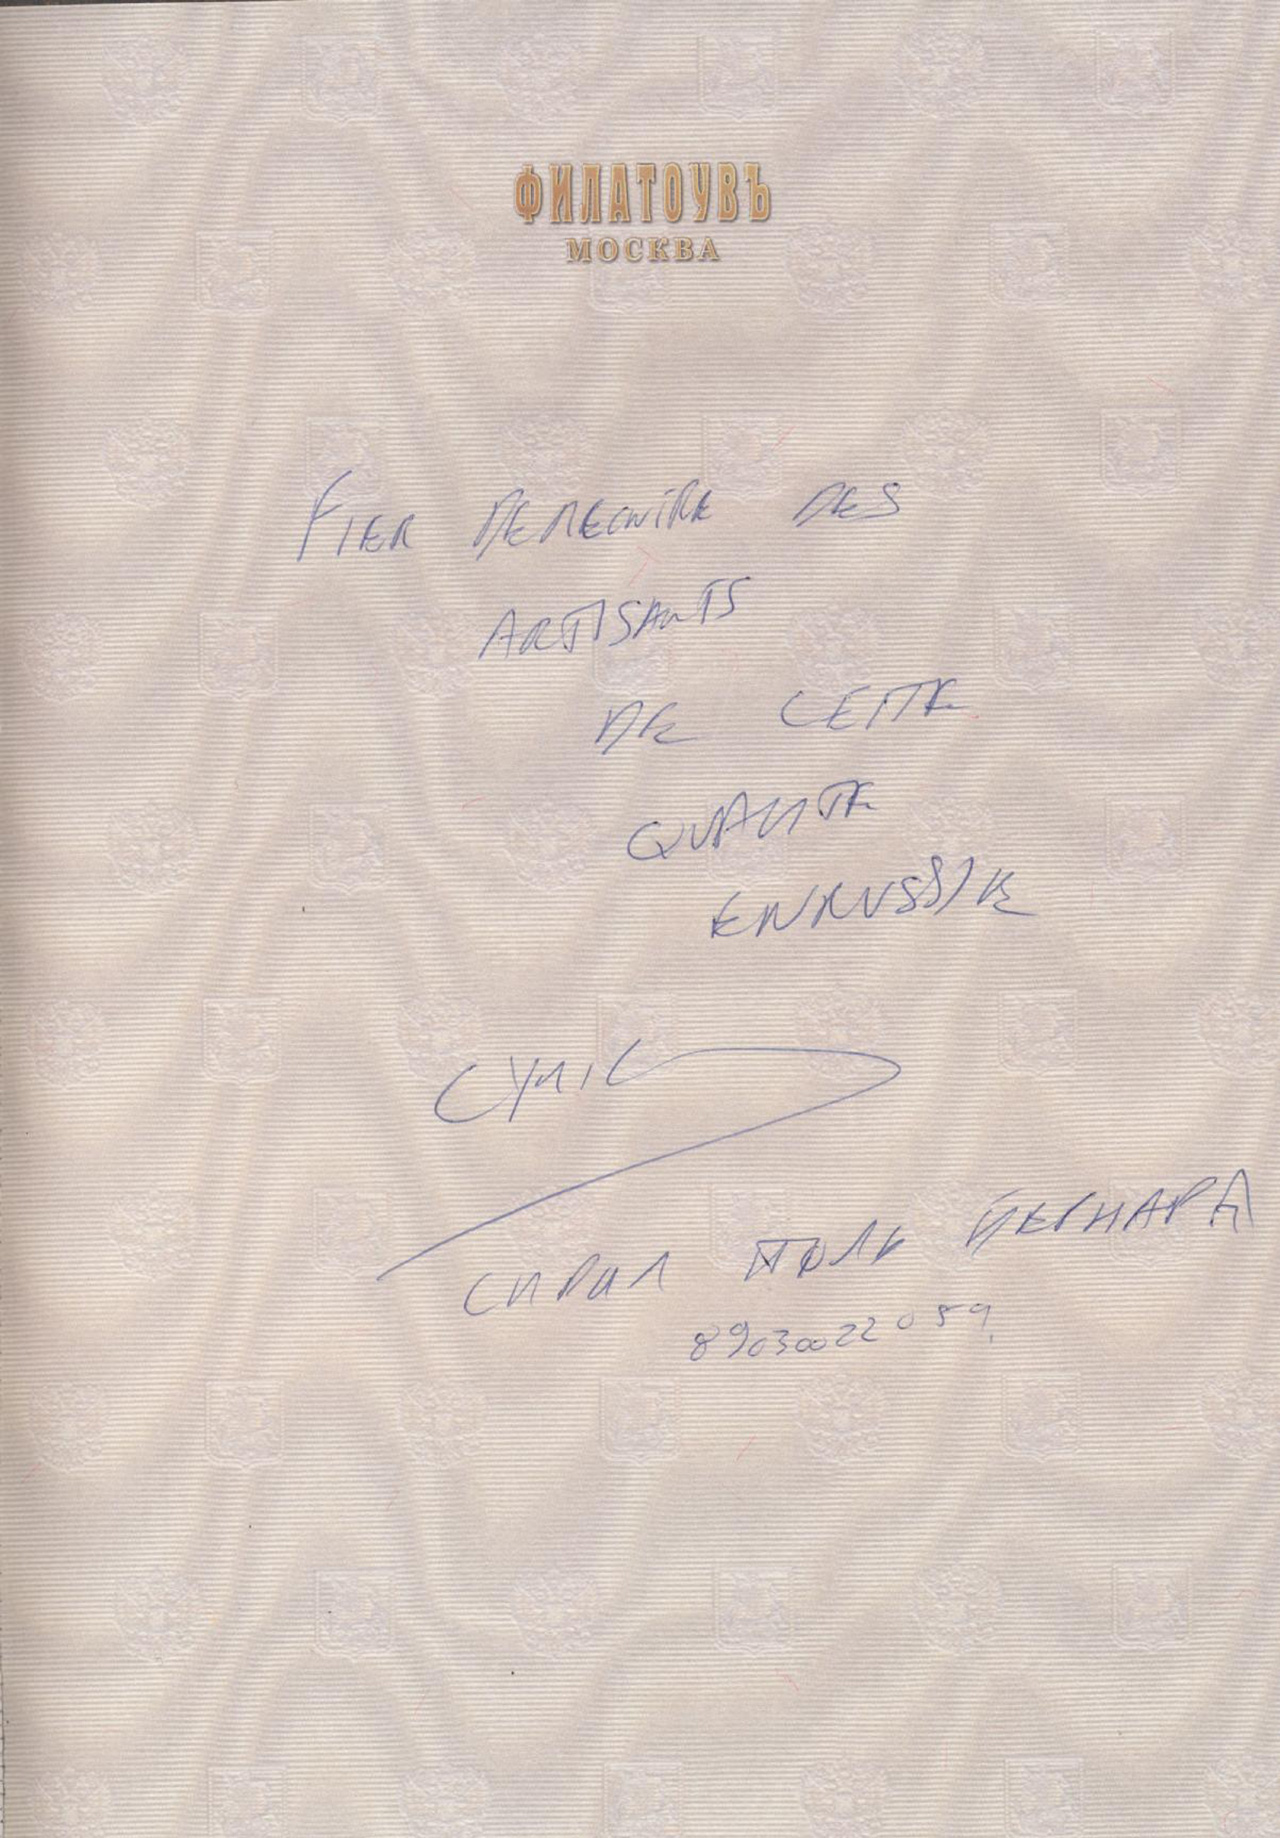 ФИЛАТОУВЪ
МОСКВА
FIER DE RECONTRE DES
ARTISANTS
DE CETTE
QUALITE
EN RUSSIE
CYRIL
СИРИЛ ПОЛЬ БЕРНАРД
89030022059